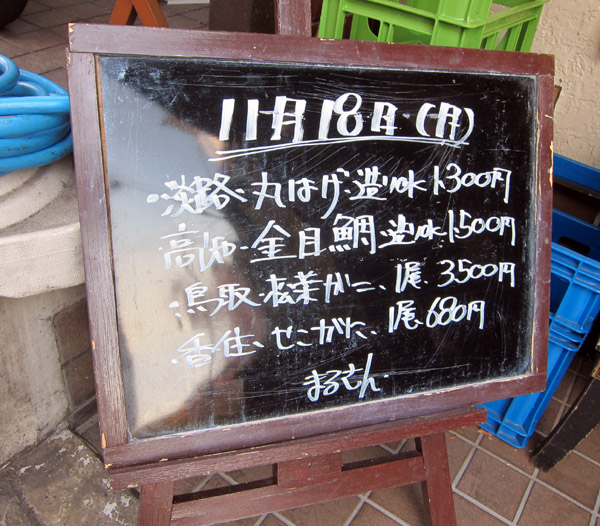 11月18日(月)
・淡路・丸はげ造り 1,300円
高知・金目鯛造り 1,500円
・鳥取・松葉がに、1尾、3,500円
・香住、せこがに、1尾680円
まるさん